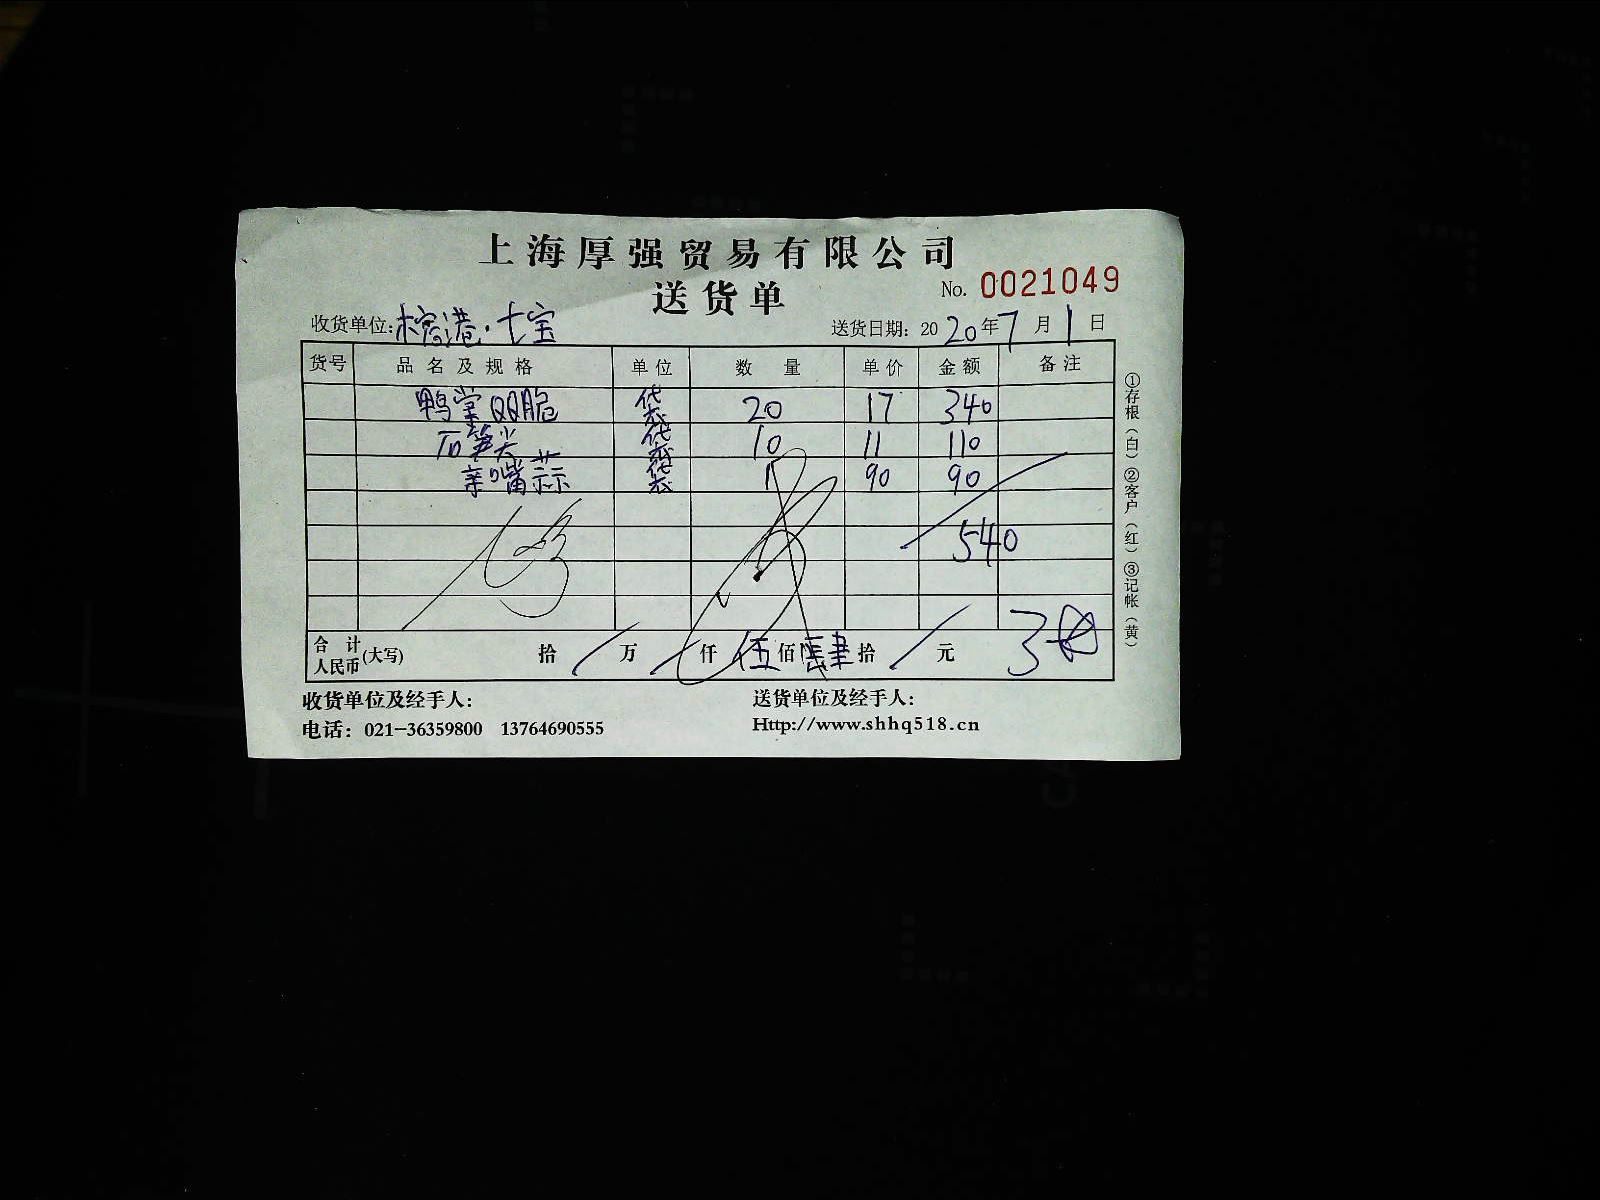 上海厚强贸易有限公司
送货单
No. 0021049
收货单位:榕港·七宝
送货日期: 2020年7月1日
货号 品名及规格 单位 数量 单价 金额 备注
鸭掌QQ脆 袋 20 17 340
石笋尖 袋 10 11 110
亲嘴蒜 袋 1 90 90
540
合计人民币(大写) 拾 / 万 / 仟 伍 佰 肆 拾 / 元
收货单位及经手人:
送货单位及经手人:
电话: 021-36359800 13764690555
Http://www.shhq518.cn
①存根(白)②客户(红)③记帐(黄)